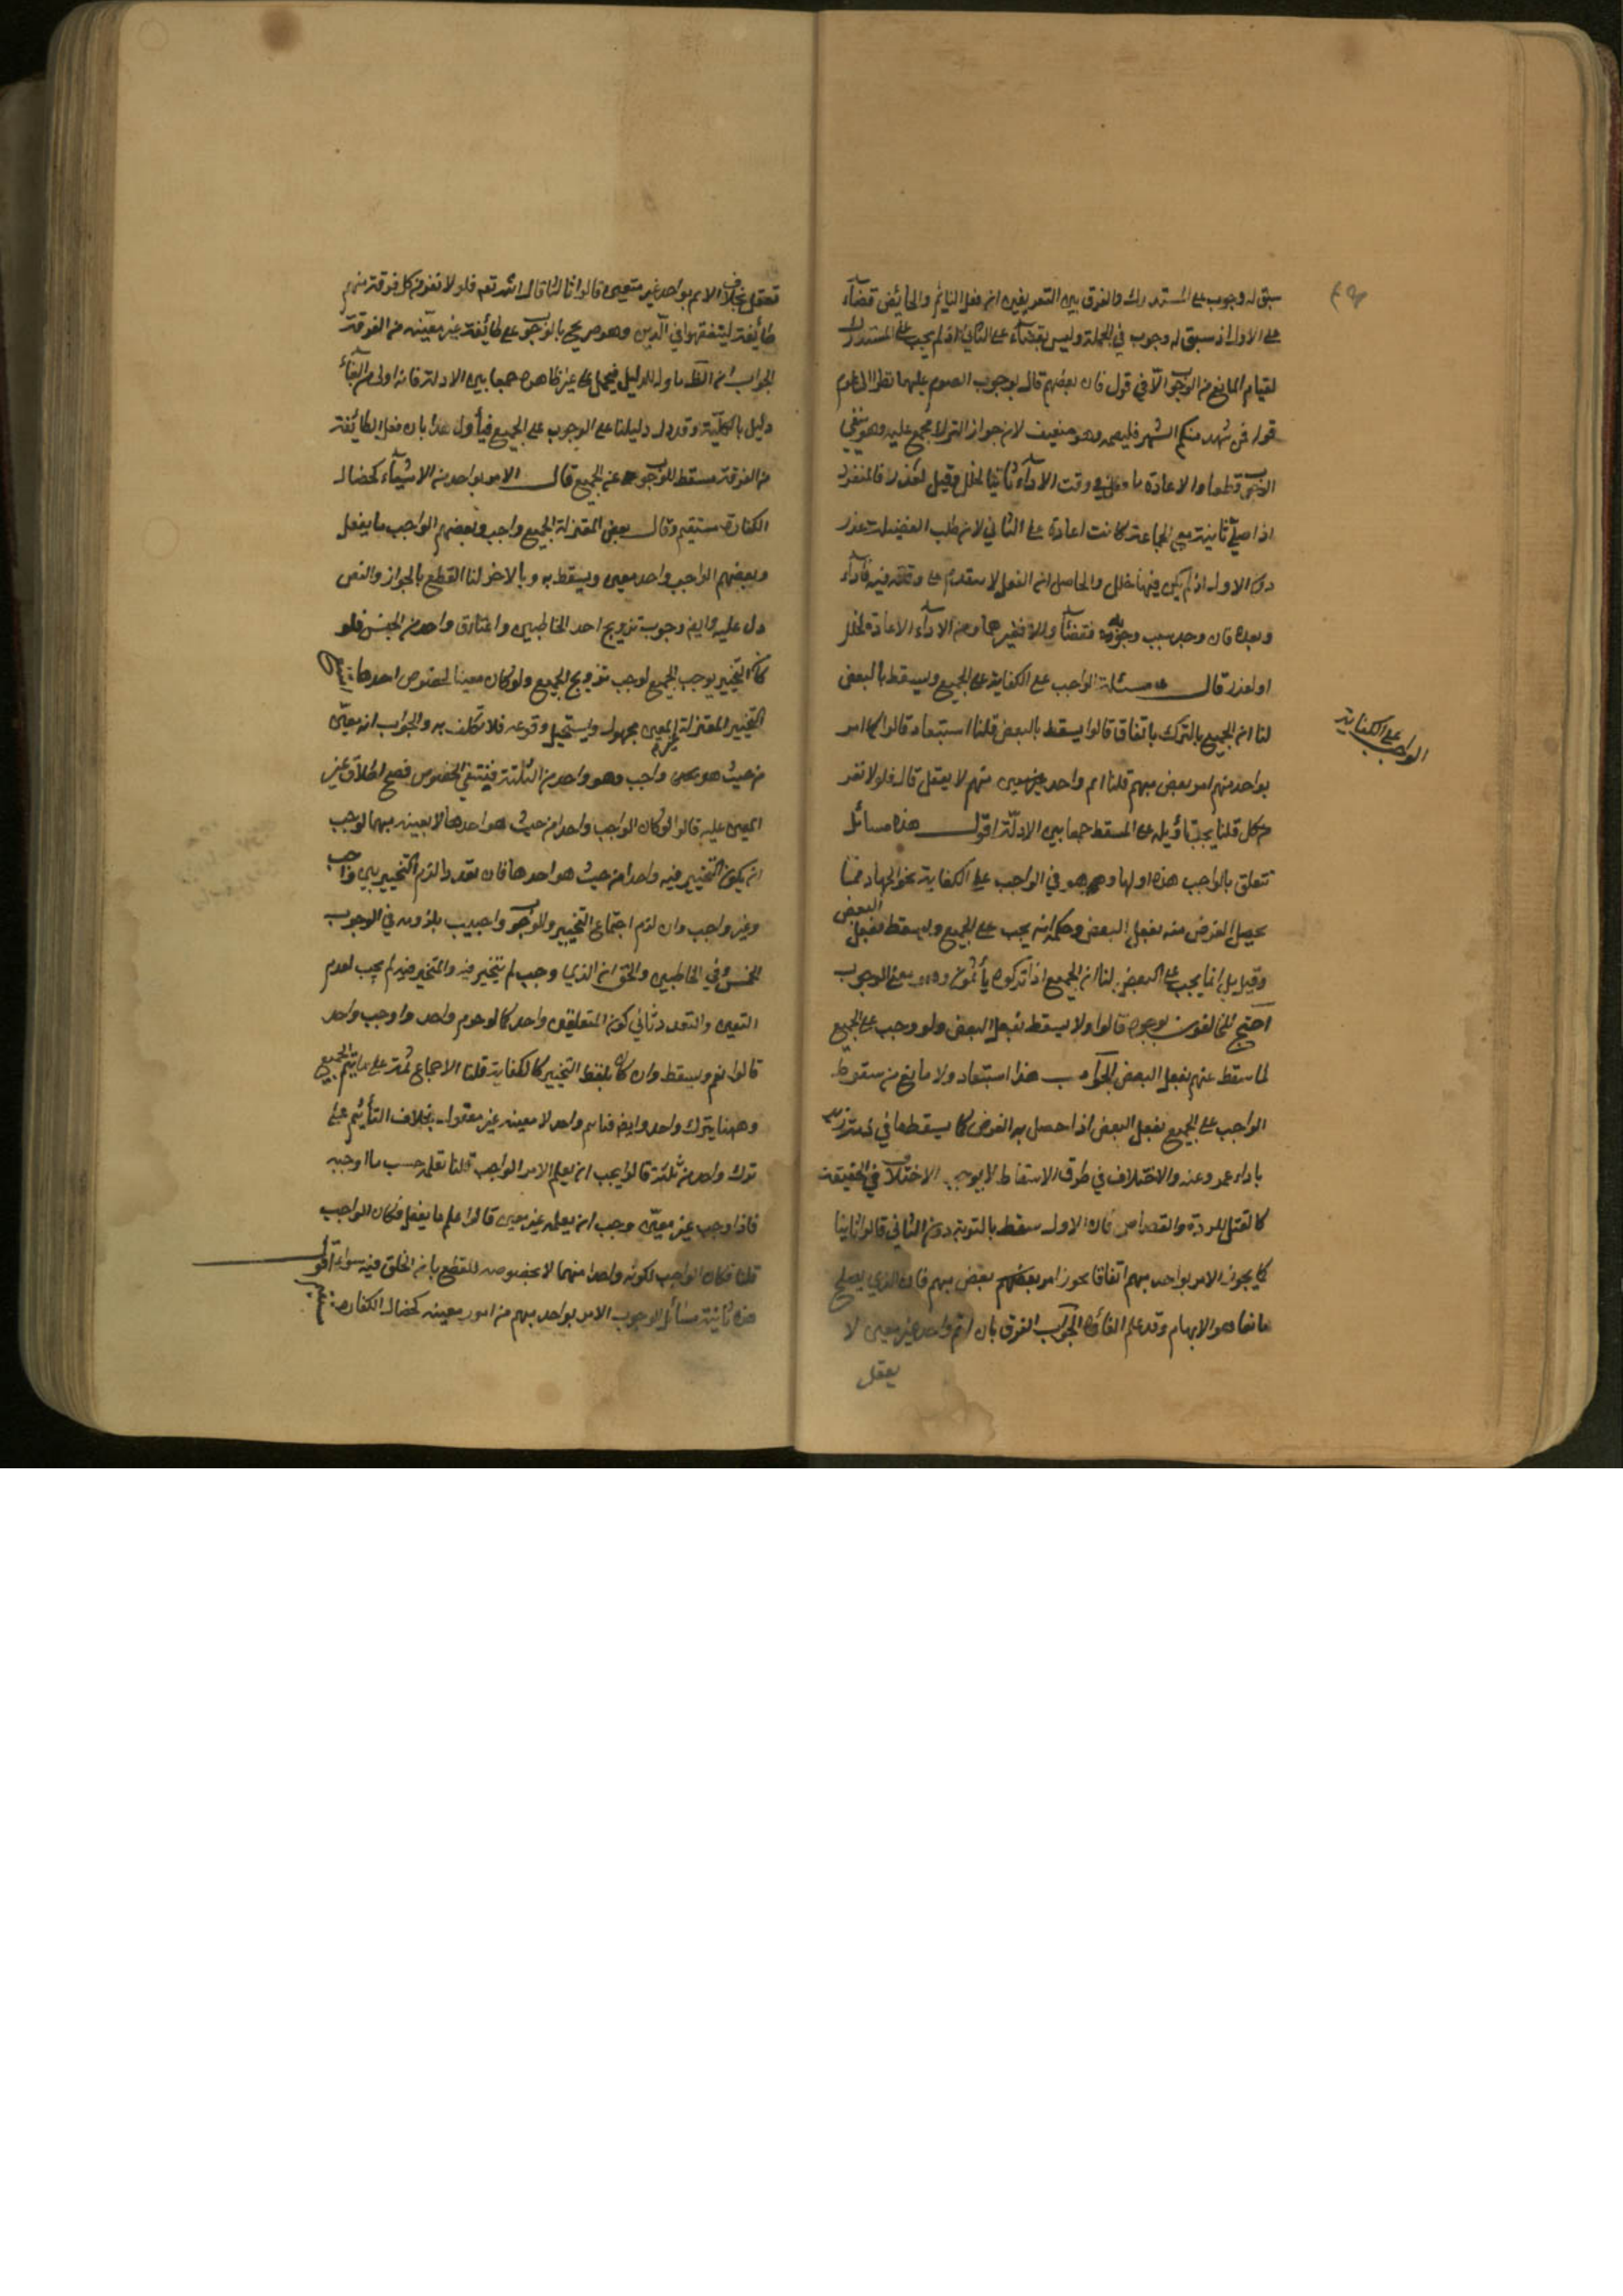 سبق له وجوب على المستدرك والفرق بين التعريفين ان فعل النائم والحائض قضاء
على الاول اذ سبق له وجوب في الجملة وليس بقضاء على الثاني اذ لم يجب على المستدرك
لقيام المانع من الوجوب الا في قول فان بعضهم قال بوجوب الصوم عليهما نظرا الى عموم
قوله فمن شهد منكم الشهر فليصمه وهو ضعيف لان جواز الترك مجمع عليه وهو ينفي
الوجوب قطعا والاعادة ما فعل في وقت الاداء ثانيا لخلل وقيل لعذر فالمنفرد
اذا صلى ثانية مع الجماعة كانت اعادة على الثاني لان طلب الفضيلة عذر
دون الاول اذ لم يكن فيها خلل والحاصل ان الفعل لا يقدم على وقته فيه فاداء
وبعده فان وجد سبب وجوبه فقضاء والا فغيرهما ومن الاداء الاعادة لخلل
او لعذر قال مسئلة الواجب على الكفاية على الجميع ويسقط بالبعض
لنا اثم الجميع بالترك باتفاق قالوا يسقط بالبعض قلنا استبعاد قالوا كما امر
بواحد مبهم امر بعض مبهم قلنا اثم واحد غير معين منهم لا يعقل قال فلولا نفر
من كل قلنا يجب تأويله على المسقط جمعا بين الادلة اقول هذه مسائل
تتعلق بالواجب هذه اولها وهو في الواجب على الكفاية نحو الجهاد مما
يحصل الغرض منه بفعل البعض وحكمه انه يجب على الجميع ويسقط بفعل البعض
وقيل بل انما يجب على البعض لنا ان الجميع اذا تركوه يأثمون وهو معنى الوجوب
احتج المخالفون بوجوه قالوا اولا يسقط بفعل البعض ولو وجب على الجميع
لما سقط عنهم بفعل البعض الجواب هذا استبعاد ولا مانع من سقوط
الواجب على الجميع بفعل البعض اذا حصل به الغرض كما يسقط ما في ذمة زيد
باداء عمرو عنه والاختلاف في طرق الاسقاط لا يوجب الاختلاف في الحقيقة
كالقتل للردة والقصاص فان الاول يسقط بالتوبة دون الثاني قالوا ثانيا
كما يجوز الامر بواحد مبهم اتفاقا يجوز امر بعضهم بعض مبهم فان الذي يصلح
مانعا هو الابهام وقد علم الغاؤه الجواب الفرق بان اثم واحد غير معين لا
يعقل
الواجب على الكفاية
تعقل بخلاف الاثم بواحد غير متعين قالوا ثالثا قال الله تعه فلولا نفر من كل فرقة منهم
طائفة ليتفقهوا في الدين وهو صريح بالوجوب على طائفة غير معينة من الفرقة
الجواب ان الظ ماول للدليل فيحمل على غير ظاهره جمعا بين الادلة فانه اولى من الغاء
دليل بالكلية وقد دل دليلنا على الوجوب على الجميع فيأول هذا بان فعل الطائفة
من الفرقة مسقط للوجوب عن الجميع قال الامر بواحد من الاشياء كخصال
الكفارة مستقيم وقال بعض المعتزلة الجميع واجب وبعضهم الواجب ما يفعل
وبعضهم الواجب واحد معين ويسقط به وبالاخر لنا القطع بالجواز والنص
دل عليه وايض وجوب تزويج احد الخاطبين واعتاق واحد من الجنس فلو
كان التخيير يوجب الجميع لوجب تزويج الجميع ولو كان معينا لخصوص احدهما
التخيير المعتزلة غير المعين مجهول ويستحيل وقوعه فلا تكلف به والجواب انه معين
من حيث هو واجب وهو واحد من الثلثة فينتفي الخصوص فصح اطلاق غير
المعين عليه قالوا لو كان الواجب واحدا من حيث هو احدها لا بعينه مبهما لوجب
ان يكون التخيير فيه واحدا من حيث هو احدها فان تعددا لزم التخيير بين واجب
وغير واجب وان لزم اجتماع التخيير والوجوب واجيب بلزومه في الوجوب
الجنس وفي الخاطبين والحق ان الذي وجب لم يتخير فيه والمتخير فيه لم يجب لعدم
التعين والتعدد ثاني كون المتعلقين واحد كما لو حرم واحد واوجب واحد
قالوا يعم ويسقط وان كان بلفظ التخيير كالكفاية قلنا الاجماع ثمة على تأثيم الجميع
وههنا بترك واحد وايض فتأثيم واحد لا بعينه غير معقول بخلاف التأثيم على
ترك واحد من ثلثة قالوا يجب ان يعلم الامر الواجب قلنا يعلمه حسب ما اوجبه
فاذا وجب غير معين وجب ان يعلمه غير معين قالوا علم ما يفعل فكان الواجب
قلنا فكان الواجب لكونه واحدا منها لا بخصوصه للقطع بان الخلق فيه سواء اقول
هذه ثانية مسائل الوجوب الامر بواحد مبهم من امور معينة كخصال الكفارة